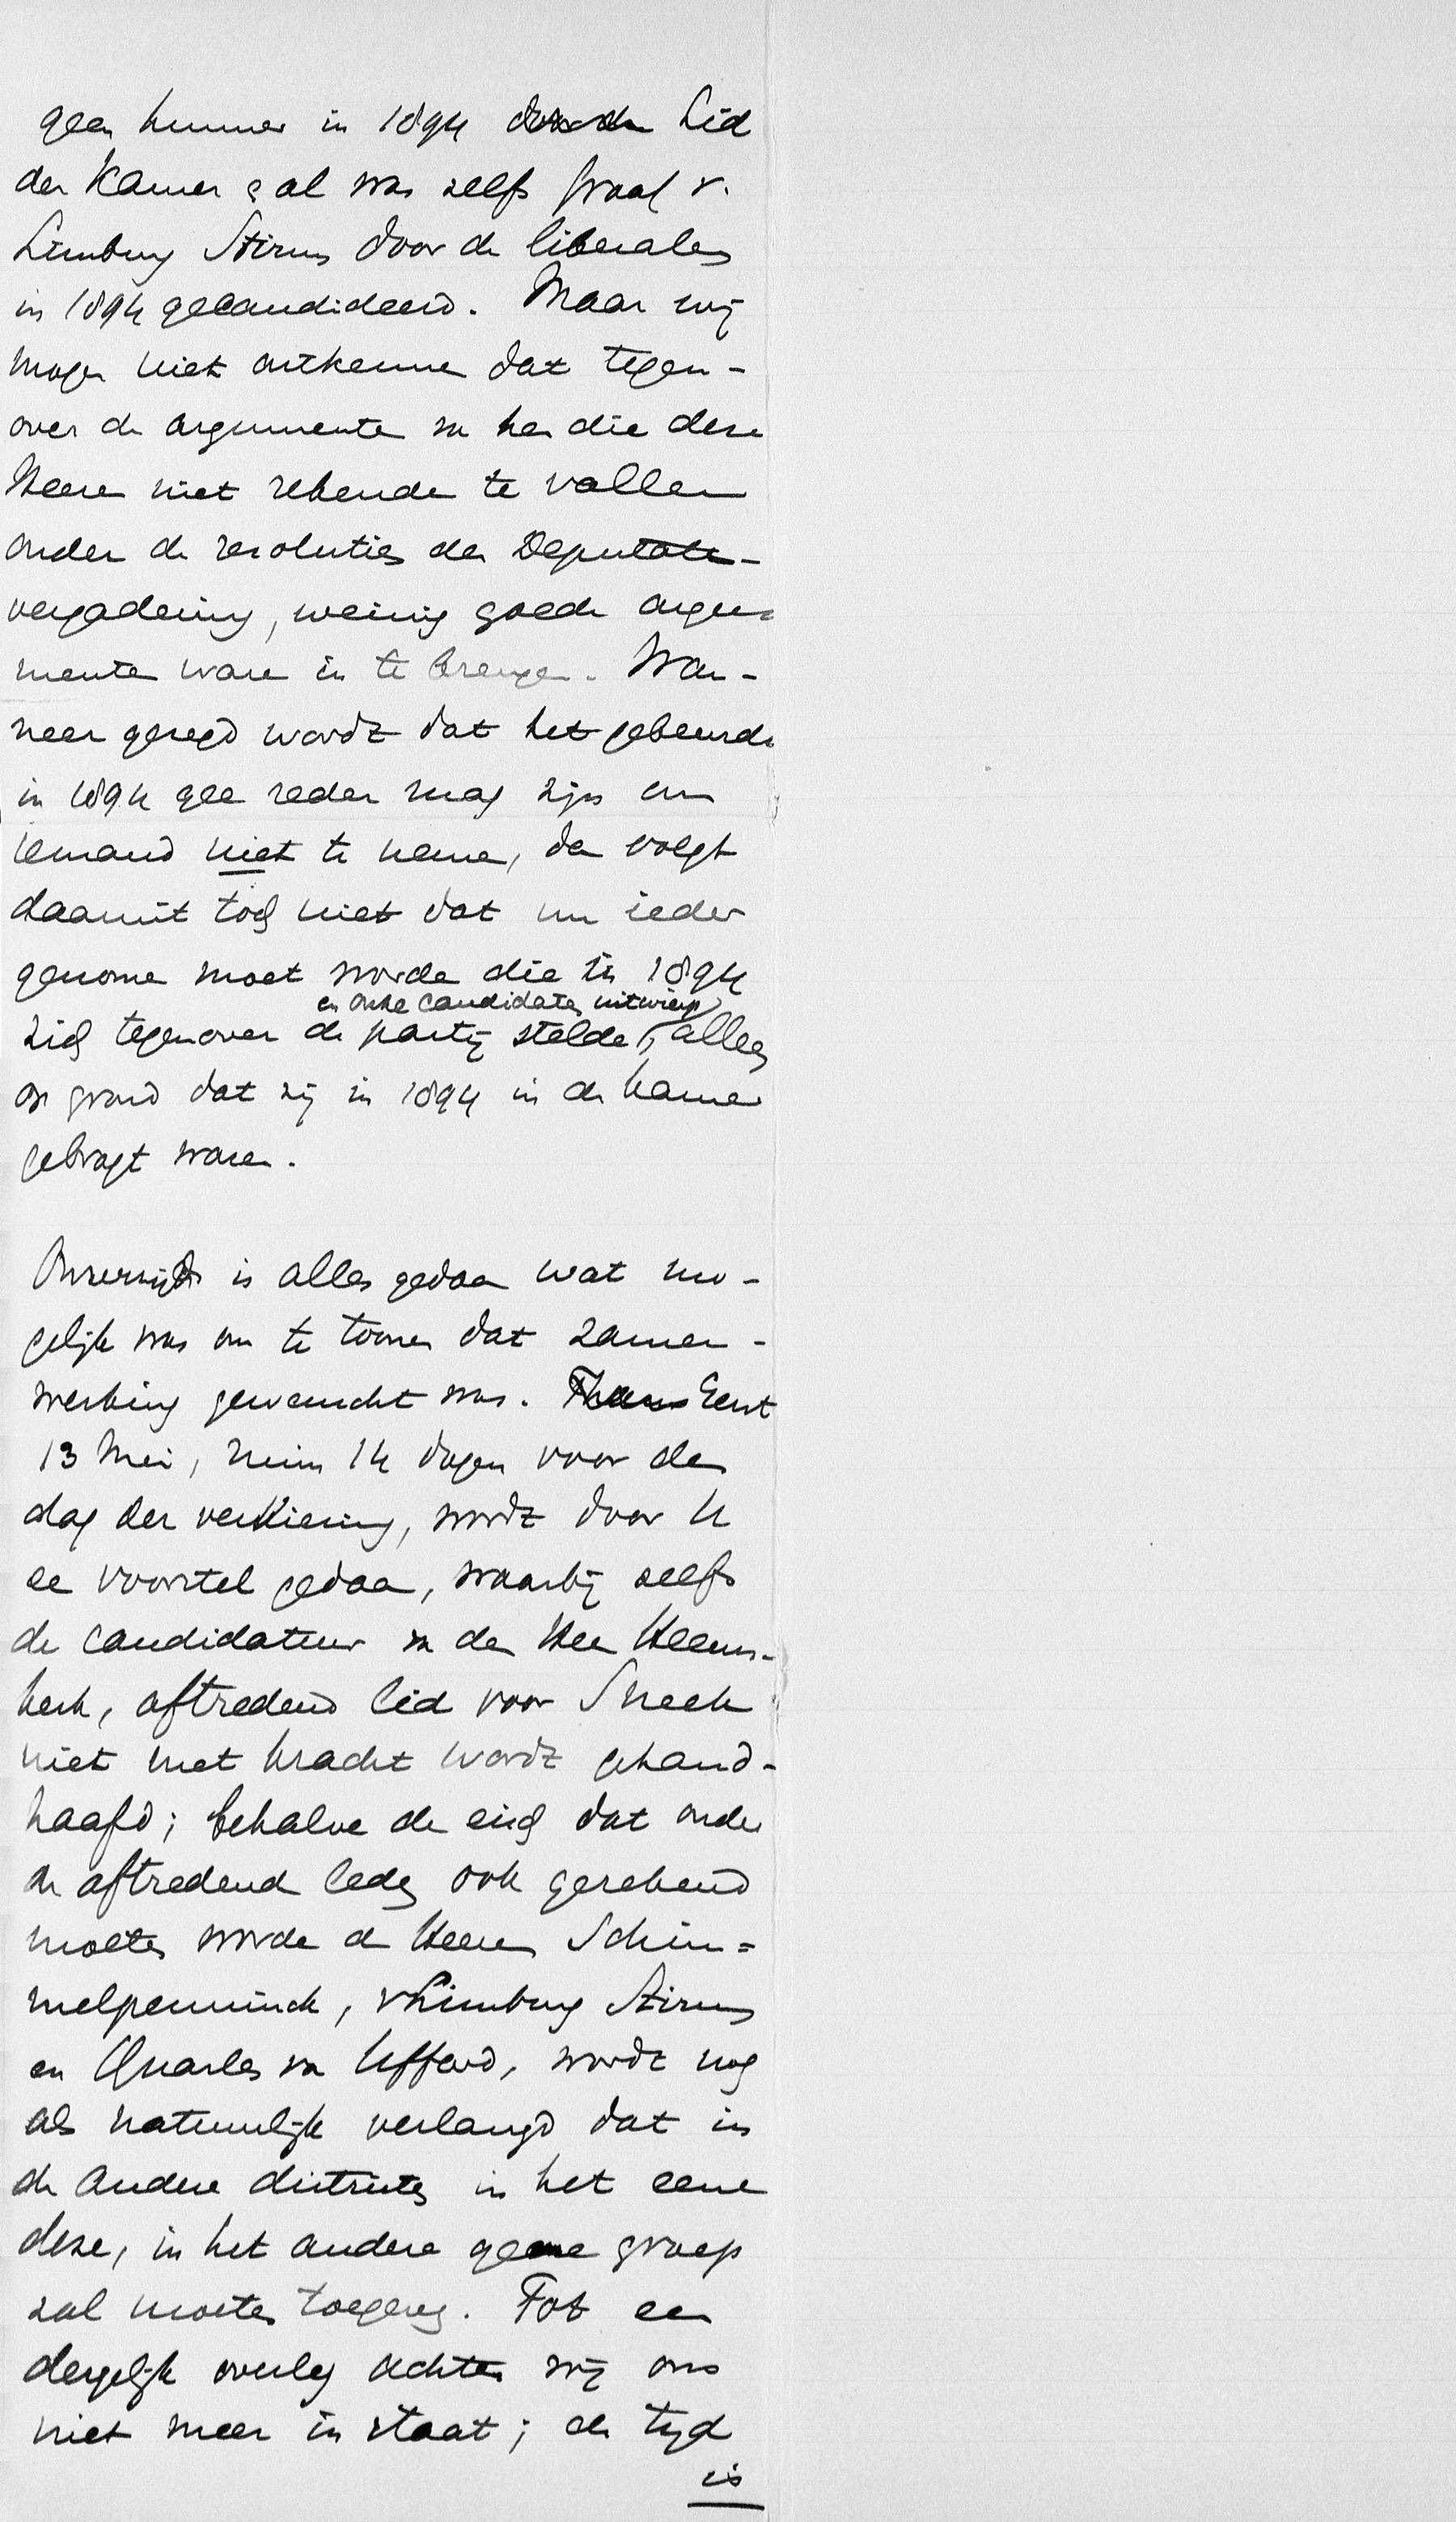 geen hunner in 1894 Lid
der Kamer & al was zelfs Graaf v.
Limburg Stirum door de liberalen
in 1894 gecandideerd. Maar wij
mogen niet ontkennen dat tegen-
over de argumenten van hen die deze
Heeren niet rekenden te vallen
onder de resoluties der Deputaten-
vergadering, weinig goede argu-
menten waren in te brengen. Wan-
neer gezegd wordt dat het gebeurde
in 1894 geen reden mag zijn om
iemand niet te nemen, dan volgt
daaruit toch niet dat nu ieder
genomen moet worden die in 1894
en onze candidaten uitwierp
zich tegenover de partij stelde, alleen
op grond dat zij in 1894 in de Kamer
gebragt waren.
Onzerzijds is alles gedaan wat mo-
gelijk was om te toonen dat samen-
werking gewenscht was. Thans Eerst
13 Mei, ruim 14 dagen voor den
dag der verkiezing, wordt door U
een voorstel gedaan, waarbij zelfs
de candidatuur van den Heer Heems-
kerk, aftredend lid voor Sneek
niet met kracht wordt gehand-
haafd; behalve de eisch dat onder
de aftredende leden ook gerekend
moeten worden de Heeren Schim=
melpenninck, v Limburg Stirum
en Quarles van Ufford, wordt nog
als natuurlijk verlangd dat in
de andere districten in het eene
deze, in het andere gene groep
zal moeten toegeven. Tot een
dergelijk overleg achten wij ons
niet meer in staat; de tijd
is